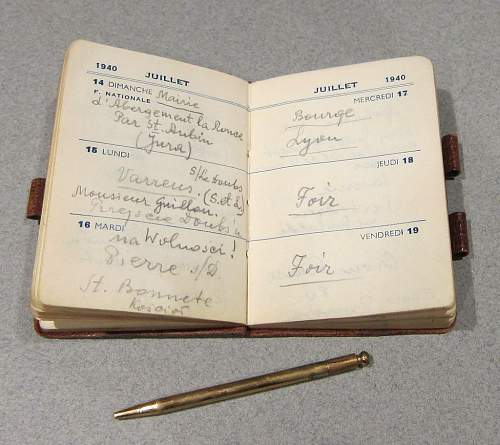 1940 JUILLET
14 DIMANCHE Mairie
F. NATIONALE
d'Abergement la Ronce
Par St. Aubin
(Jura)
15 LUNDI s/Le Doubs
Varreus. (S. et L)
Monsieur Guillon.
Przejście Doubs'u
16 MARDI na Wolności!
Pierre s/D.
St. Bonnete
Kościół
JUILLET 1940
MERCREDI 17
Bourge
Lyon
JEUDI 18
Foir
VENDREDI 19
Foir